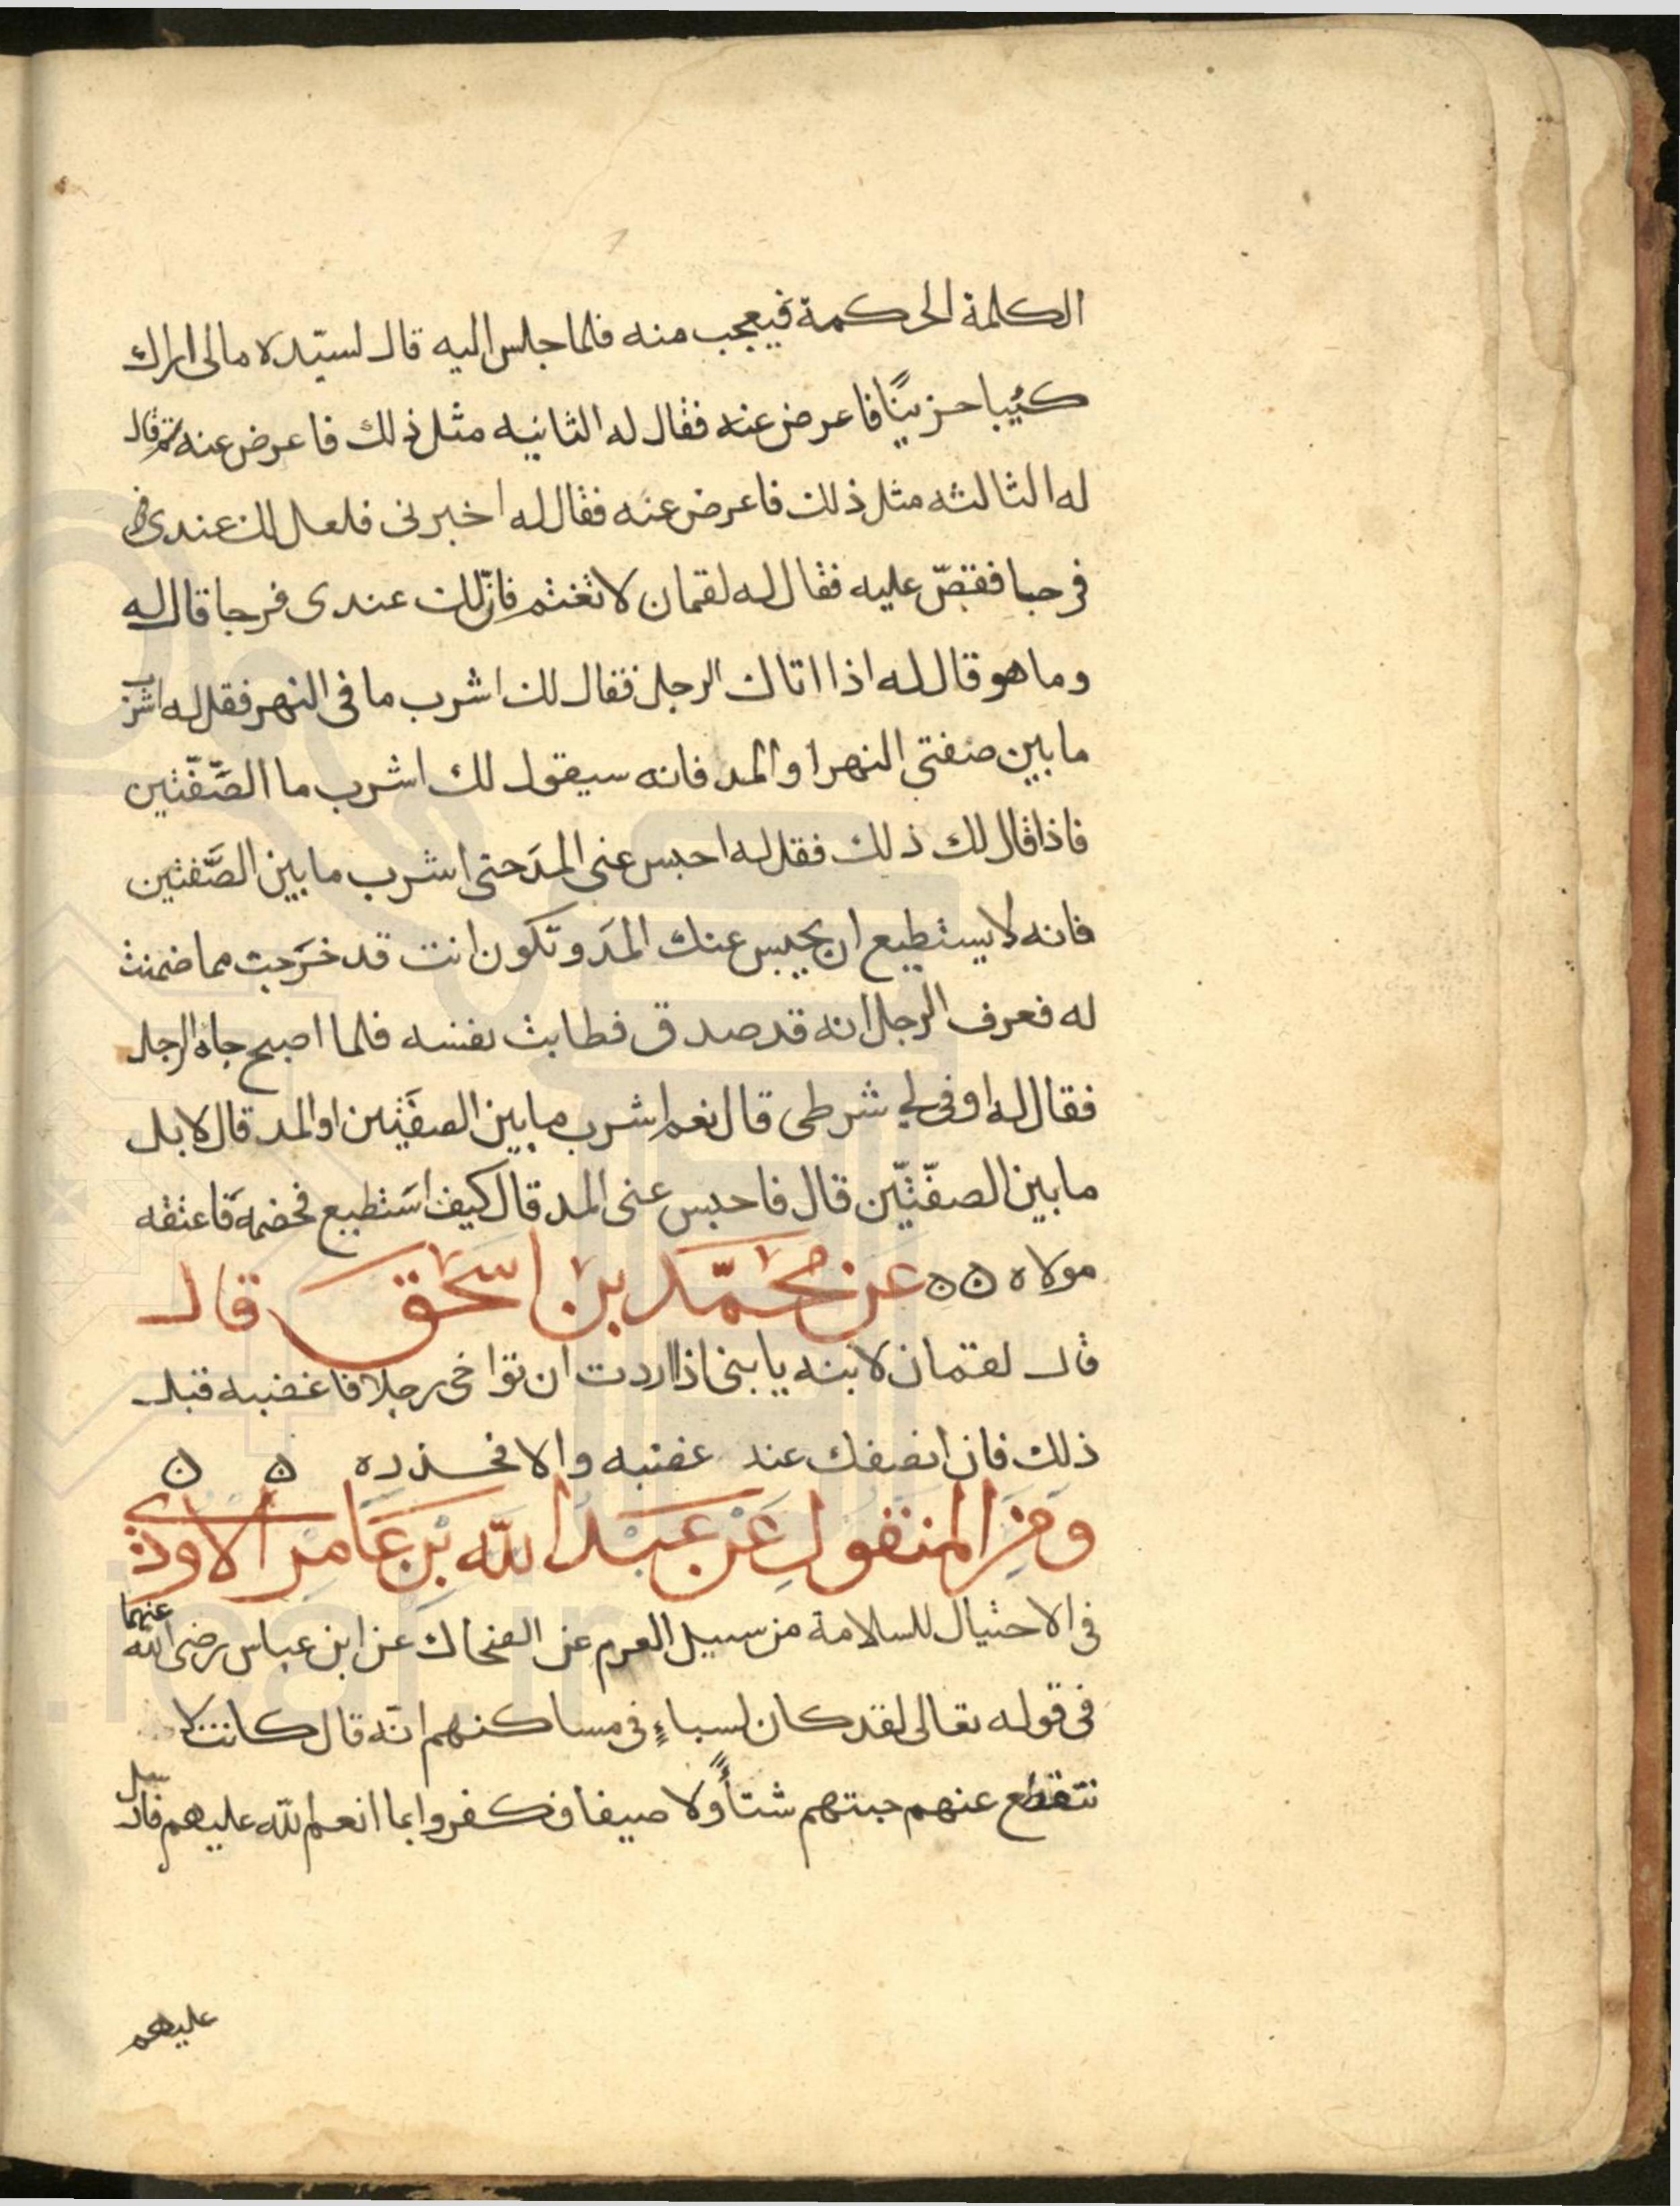 الكلمة الحكمة فيعجب منه فلما جلس اليه قال لسيّده مالى اراك
كئيبا حزينًا فاعرض عنه فقال له الثانيه مثل ذلك فاعرض عنه ثم قال
له الثالثه مثل ذلك فاعرض عنه فقال له اخبرنى فلعل لك عندى
فرجا فقصّ عليه فقال له لقمان لا تغتم فانّ لك عندى فرجا قال له
وما هو قال له اذا اتاك الرجل فقال لك اشرب ما فى النهر فقل له اشرب
ما بين ضفتى النهر او المد فانه سيقول لك اشرب ما الضَّفّتين
فاذا قال لك ذلك فقل له احبس عنى المدَ حتى اشرب ما بين الضَّفتين
فانه لا يستطيع ان يحبس عنك المدَ وتكون انت قد خرَجت مما ضمنت
له فعرف الرجل انه قد صدق فطابت نفسه فلما اصبح جاه الرجل
فقال له اوفى لى شرطى قال نعم اشرب ما بين الضفَتين او المد قال لا بل
ما بين الضفّتّين قال فاحبس عنى المد قال كيف اسَتطيع فخصمهَ فاعتقه
مولاه ه ه عن محمّد بن اسحق قال
قال لقمان لابنه يا بنى اذا اردت ان تواخى رجلا فاغضبه قبل
ذلك فان انصفك عند غضبه والا فحذره ه ه
ومن المنقول عَن عبد الله بن عَامر الاوذى
فى الاحتيال للسلامة من سيل العرم عن الضحاك عن ابن عباس رضى الله عنهما
فى قوله تعالى لقد كان لسباءٍ فى مساكنهم انّه قال كانت لا
تتقطع عنهم جنتهم شتاًء ولا صيفا فكفروا بما انعم الله عليهم فارسل
عليهم